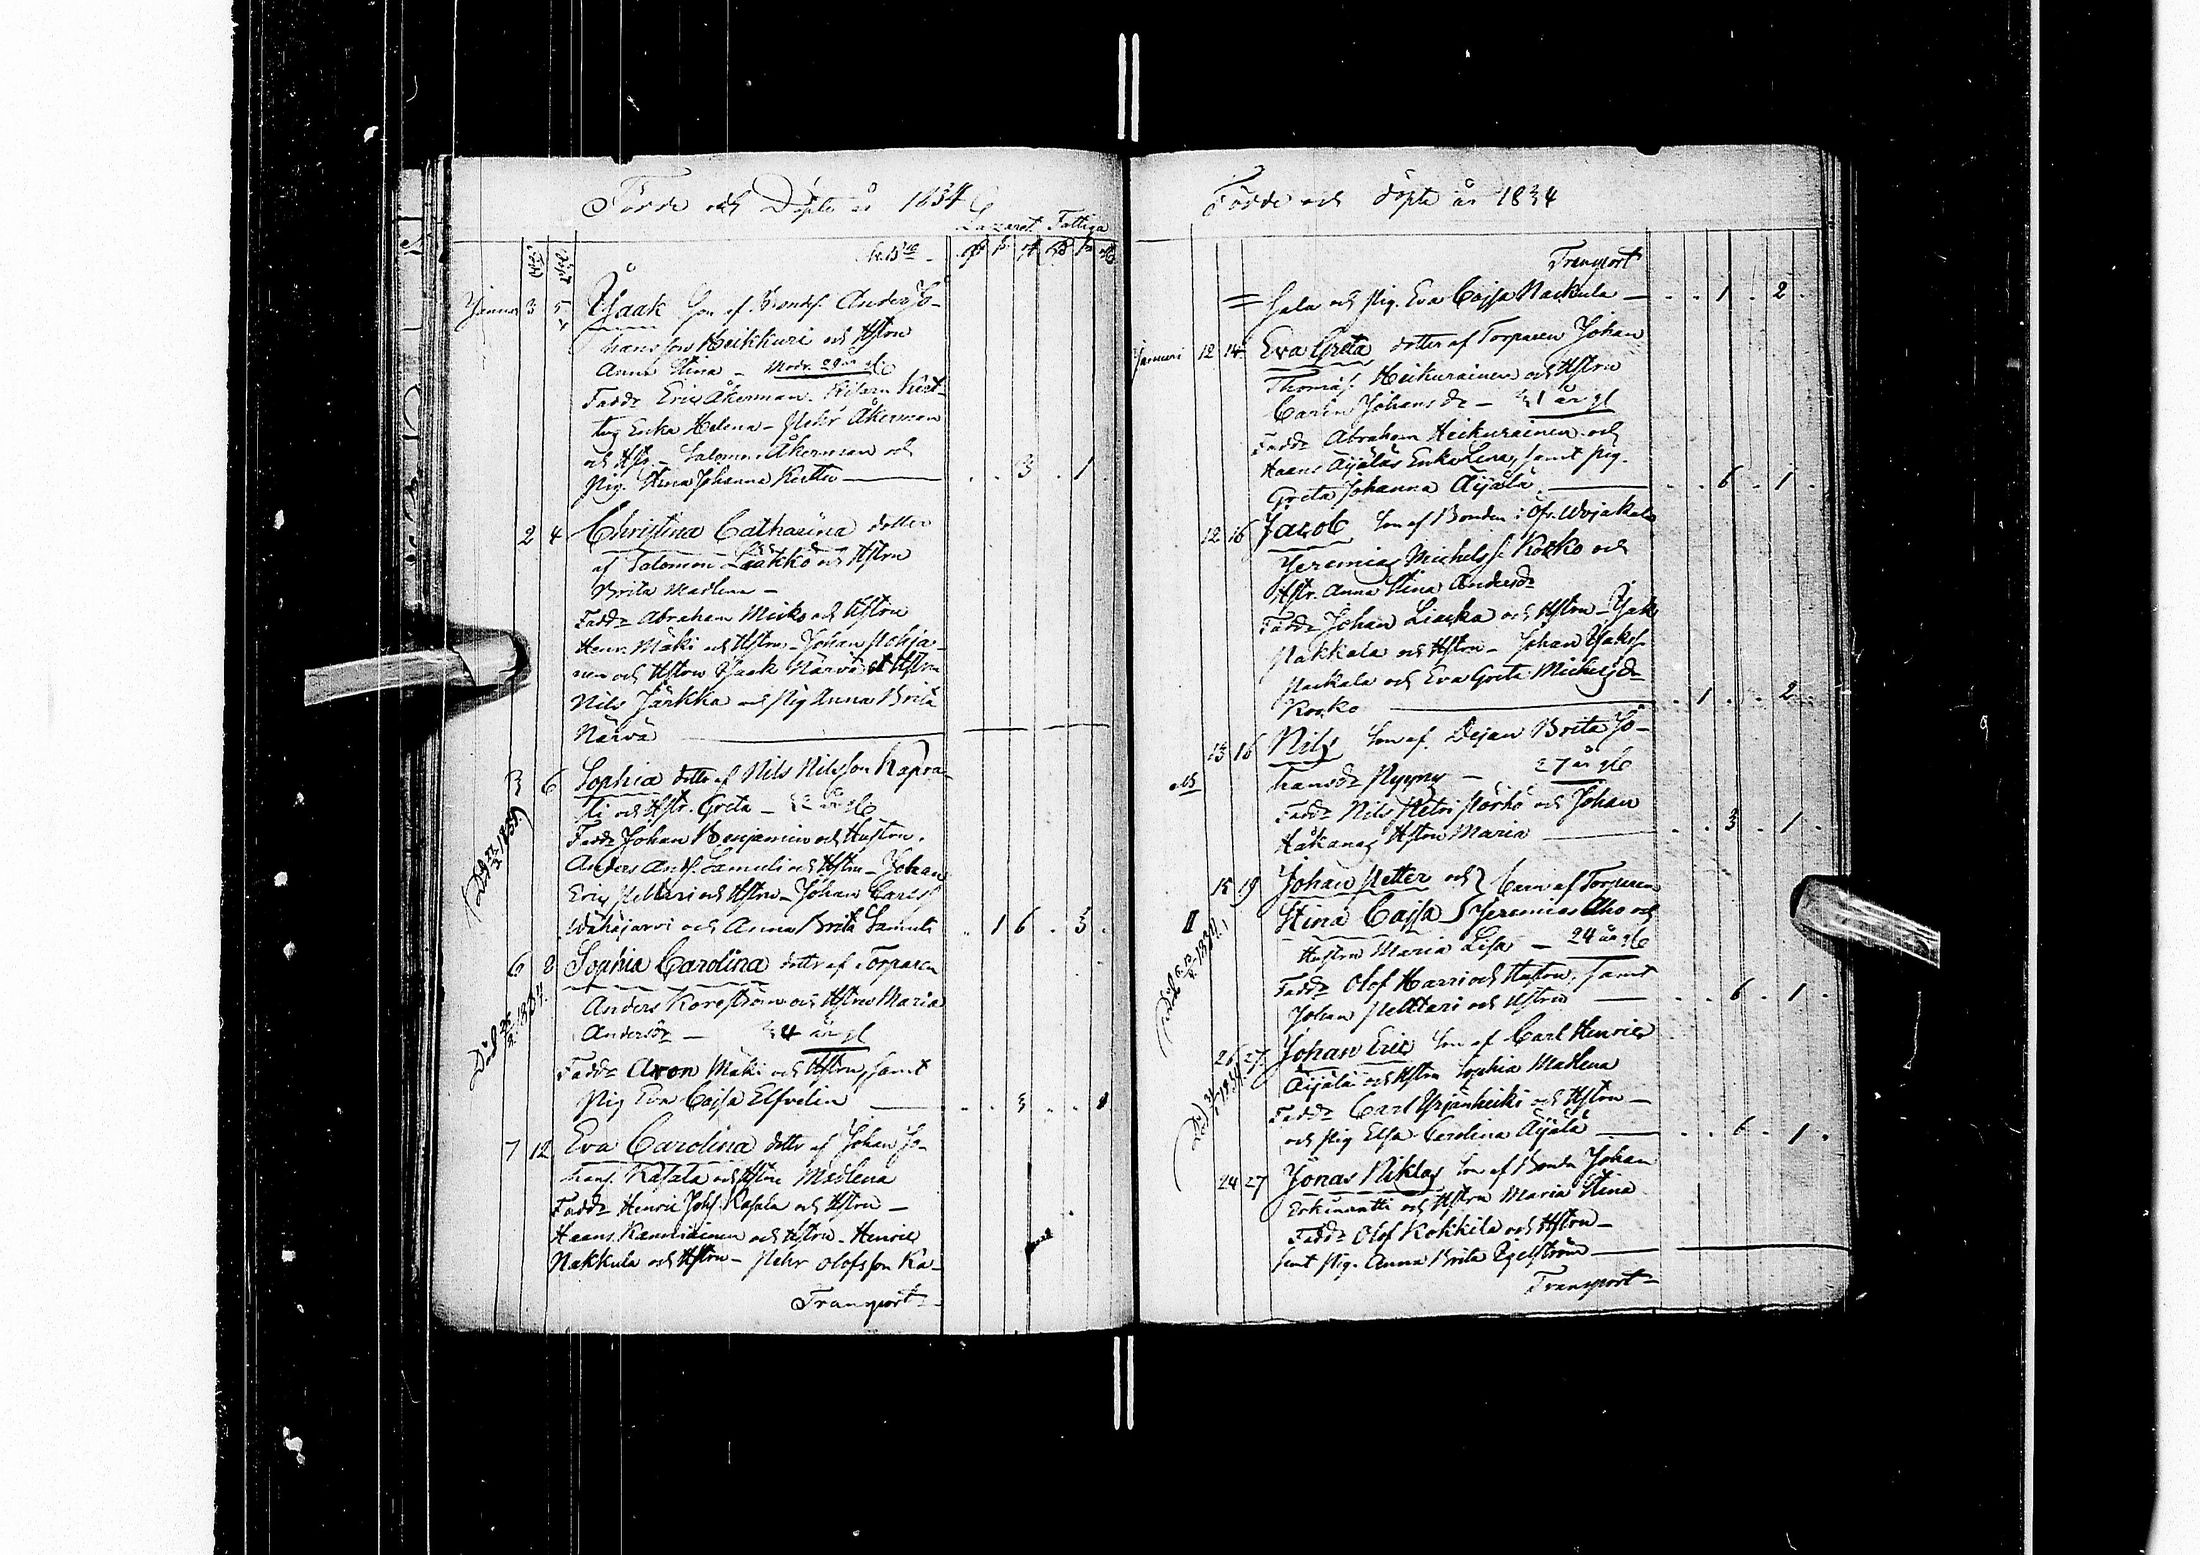 Födde och Döpte år 1834
Lazaret Fattiga
Januar 3 5 Isaak Son af Bonds. Anders Jo-
hansson Heikkuri och Hstru
Anna Stina - Modr.
Fadd: Eric Åkerman
Enka Helena - Pehr Åkerman
och Hstr. - Salomon Åkerman och
Pig. Stina Johanna - . . 3 . 1 .
2 4 Christina Catharina dotter
af Salomon Laakko och Hstru
Brita Madlena -
Fadd: Abraham Micko och Hstru
Henr. Mäki och Hstru - Johan Pohja-
nen och Hstru Isaak Närvä och Hstru
Nils Järkka och Pig Anna Brita
Närvä
3 6 Sophia dottr af Nils Nilsson Kapra-
och Hstr. Greta -
Fadd: Johan Benjamin och Hustru.
Anders And.s. Samuli och Hstru - Johan
Eric Peltari och Hstru - Johan Carls
Wähäjärvi och Anna Brita Samuli . . 1 6 . 3 .
6 8 Sophia Carolina dottr af Torparen
Anders Korpström och Hstru Maria
Andersdr - 24 år gl
Fadd: Aron Mäki och Hstru, samt
Pig Eva Cajsa Elfvelin
7 12 Eva Carolina dottr af Johan Jo-
hans. Rasala och Hstru Madlena
Fadd: Henric Johs. Rasala och Hstru -
Haans och Hstru - Henric
Nakkula och Hstru - Pehr Olofsson Ra-
Transport -
Födde och döpte år 1834
Transport
= sala och Pig. Eva Cajsa Nackula - . . 1 . 2 .
Januari 12 14 Eva Greta dotter af Torparen Johan
Thomas. Heikurainen och Hstru
Carin Johansdr -
Fadd: Abraham Heikurainen och
Haans Äijäläs Enka Lena, samt Pig.
Greta Johanna Äijälä . . 6 . 1 .
12 16 Jacob Son af Bonden i Öfv. Wojakala
Jeremias Michelss. Kosko och
Hstr. Anna Stina Andersdr
Fadd: Johan Liacka och Hstru - Isak
Nakkala och Hstru - Johan Isaks.
Nackala och Eva Greta Michelsdr
Kosko . 1 . . 2 .
13 16 Nils Son af Dejan Brita Jo-
hansdr Nyyny - 27 år gl
Fadd: Nils Petri Pörhö och Johan
Håkans Hstru Maria . . 3 . 1 .
15 19 Johan Petter och } barn af Torparen
II Stina Cajsa } Jeremias Aho och
Hustru Maria Lisa - 24 år gl
Fadd: Olof Harri och Hustru, samt
Johan Pelttari och Hstru . . 6 . 1 .
26 27 Johan Eric Son af Carl Henric
Äijälä och Hstru Sophia Madlena
Fadd: Carl Yrjänheiki och Hstru -
och Pig Elsa Carolina Äijälä . . 6 . 1 .
24 27 Jonas Niklas Son af Bonden Johan
Erkinantti och Hstru Maria Stina
Fadd: Olof Kokkila och Hstru -
samt Pig. Anna Brita Egelström
Transport -